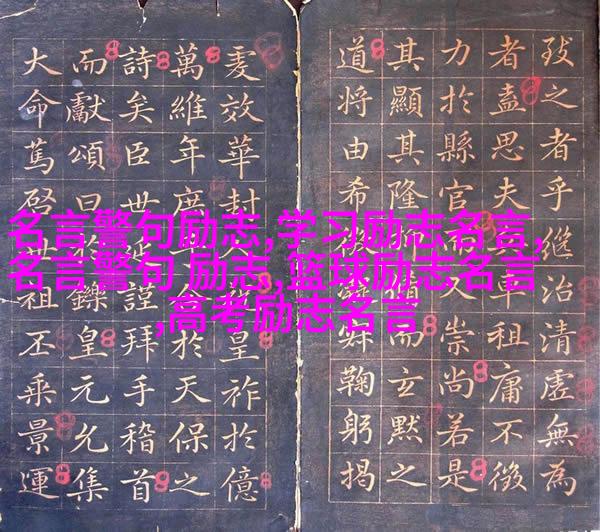 名言警句励志,学习励志名言,
名言警句 励志,篮球励志名言
,高考励志名言
致之者乎繼治清虛無為
者盍思夫車租庸不徵
力於縣官而人崇尚若是
其顯其隆情而玄默之
道將由希微鞠躬揭
夐效華封皇祚於億
萬維年庶於天保之
詩矣臣世延謹拜手稽首
而獻頌曰於鑠皇元允集
大命篤啓世祖丕乘景運